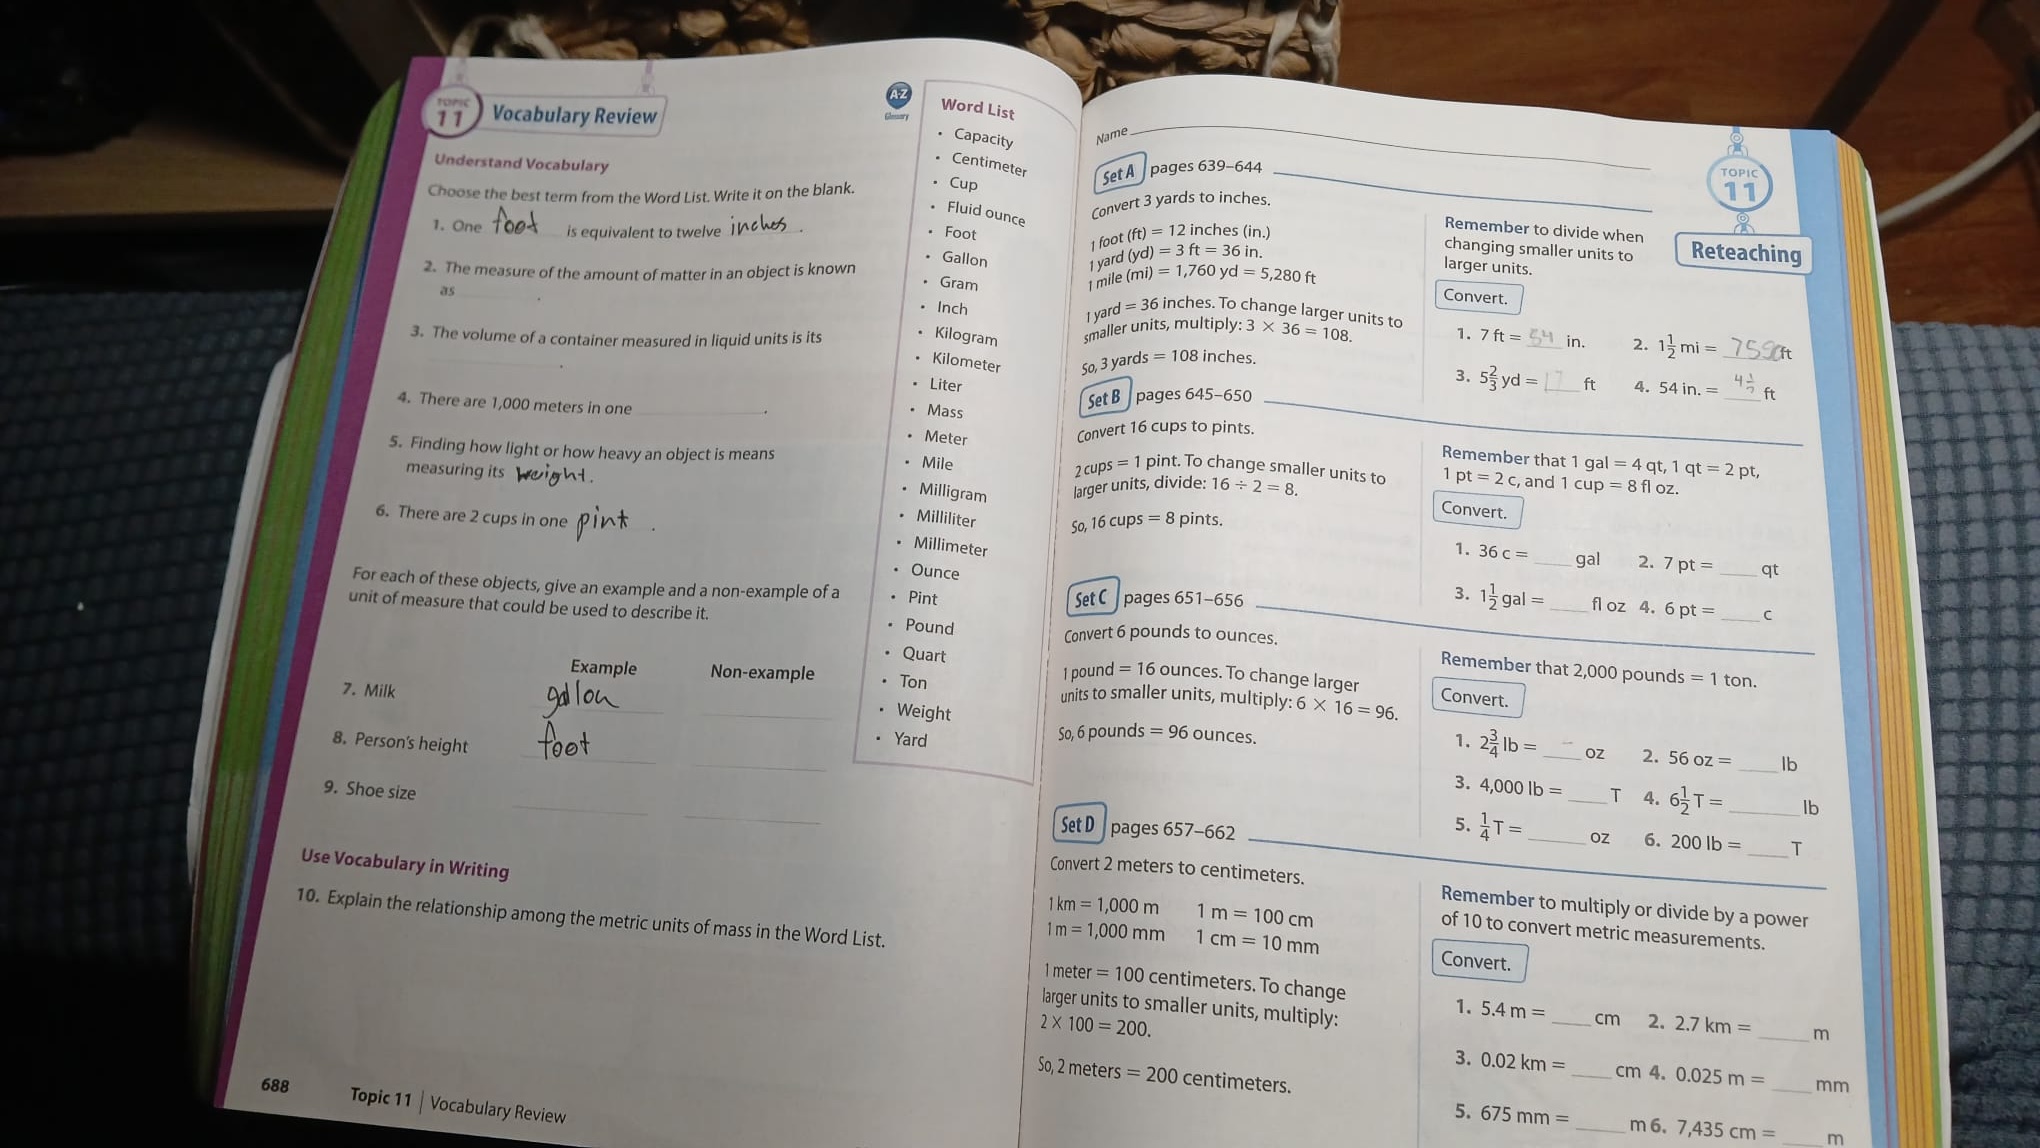 TOPIC
11
Vocabulary Review
A-Z
Glossary
Understand Vocabulary
Choose the best term from the Word List. Write it on the blank.
1. One foot is equivalent to twelve inches.
2. The measure of the amount of matter in an object is known
as ____.
3. The volume of a container measured in liquid units is its
____.
4. There are 1,000 meters in one ____.
5. Finding how light or how heavy an object is means
measuring its weight.
6. There are 2 cups in one pint.
For each of these objects, give an example and a non-example of a
unit of measure that could be used to describe it.
Example Non-example
7. Milk gallon
8. Person's height foot
9. Shoe size
Use Vocabulary in Writing
10. Explain the relationship among the metric units of mass in the Word List.
688 Topic 11 | Vocabulary Review
Word List
• Capacity
• Centimeter
• Cup
• Fluid ounce
• Foot
• Gallon
• Gram
• Inch
• Kilogram
• Kilometer
• Liter
• Mass
• Meter
• Mile
• Milligram
• Milliliter
• Millimeter
• Ounce
• Pint
• Pound
• Quart
• Ton
• Weight
• Yard
Name
TOPIC
11
Reteaching
Set A pages 639–644
Convert 3 yards to inches.
1 foot (ft) = 12 inches (in.)
1 yard (yd) = 3 ft = 36 in.
1 mile (mi) = 1,760 yd = 5,280 ft
1 yard = 36 inches. To change larger units to
smaller units, multiply: 3 × 36 = 108.
So, 3 yards = 108 inches.
Remember to divide when
changing smaller units to
larger units.
Convert.
1. 7 ft = 54 in. 2. 1 1/2 mi = ft
3. 5 2/3 yd = 17 ft 4. 54 in. = ft
Set B pages 645–650
Convert 16 cups to pints.
2 cups = 1 pint. To change smaller units to
larger units, divide: 16 ÷ 2 = 8.
So, 16 cups = 8 pints.
Remember that 1 gal = 4 qt, 1 qt = 2 pt,
1 pt = 2 c, and 1 cup = 8 fl oz.
Convert.
1. 36 c = ____ gal 2. 7 pt = ____ qt
3. 1 1/2 gal = ____ fl oz 4. 6 pt = ____ c
Set C pages 651–656
Convert 6 pounds to ounces.
1 pound = 16 ounces. To change larger
units to smaller units, multiply: 6 × 16 = 96.
So, 6 pounds = 96 ounces.
Remember that 2,000 pounds = 1 ton.
Convert.
1. 2 3/4 lb = ____ oz 2. 56 oz = ____ lb
3. 4,000 lb = ____ T 4. 6 1/2 T = ____ lb
5. 1/4 T = ____ oz 6. 200 lb = ____ T
Set D pages 657–662
Convert 2 meters to centimeters.
1 km = 1,000 m 1 m = 100 cm
1 m = 1,000 mm 1 cm = 10 mm
1 meter = 100 centimeters. To change
larger units to smaller units, multiply:
2 × 100 = 200.
So, 2 meters = 200 centimeters.
Remember to multiply or divide by a power
of 10 to convert metric measurements.
Convert.
1. 5.4 m = ____ cm 2. 2.7 km = ____ m
3. 0.02 km = ____ cm 4. 0.025 m = ____ mm
5. 675 mm = ____ m 6. 7,435 cm = ____ m